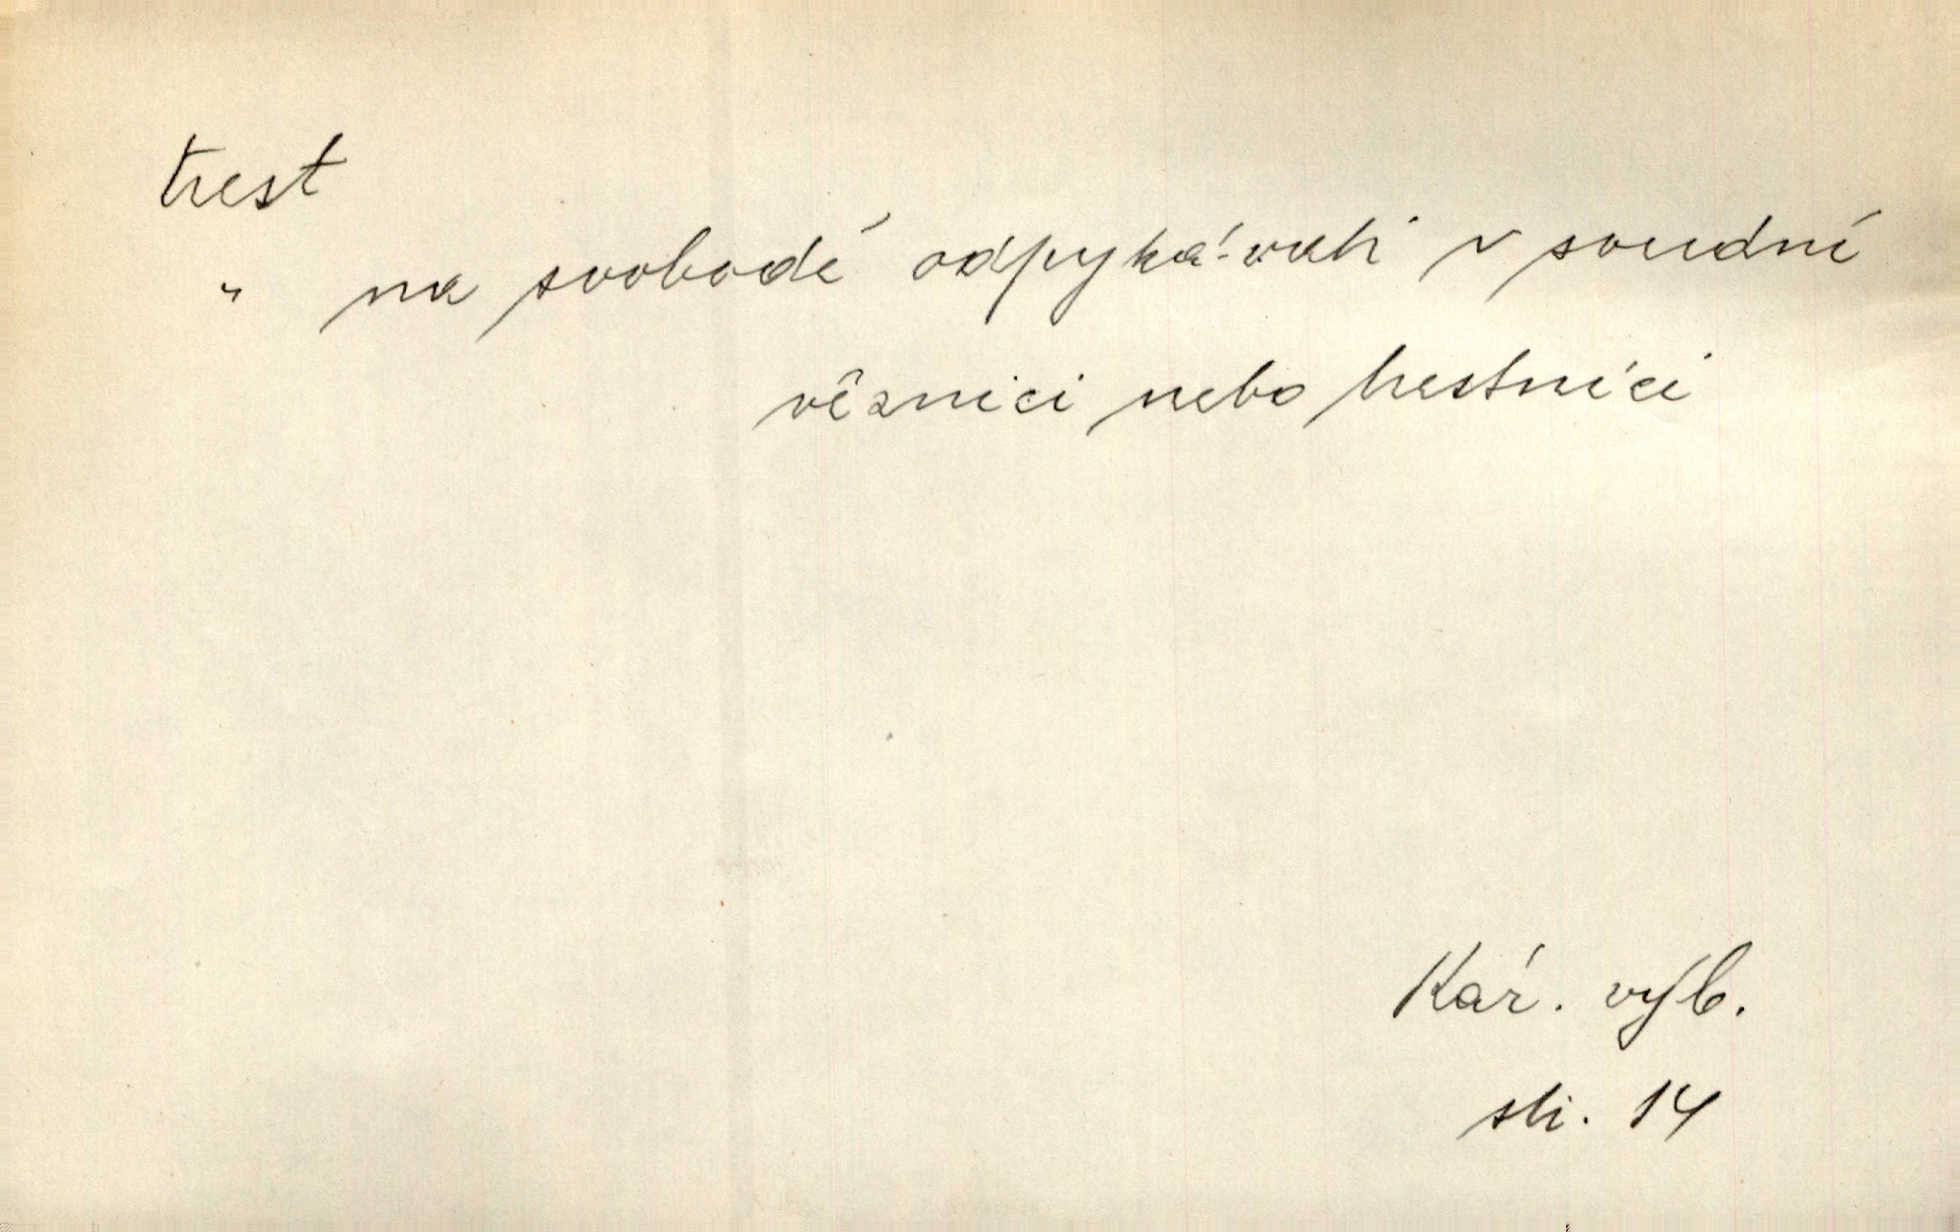 trest
" na svobodě odpykávati v soudní
věznici nebo trestnici
Kár. výb.
str. 14